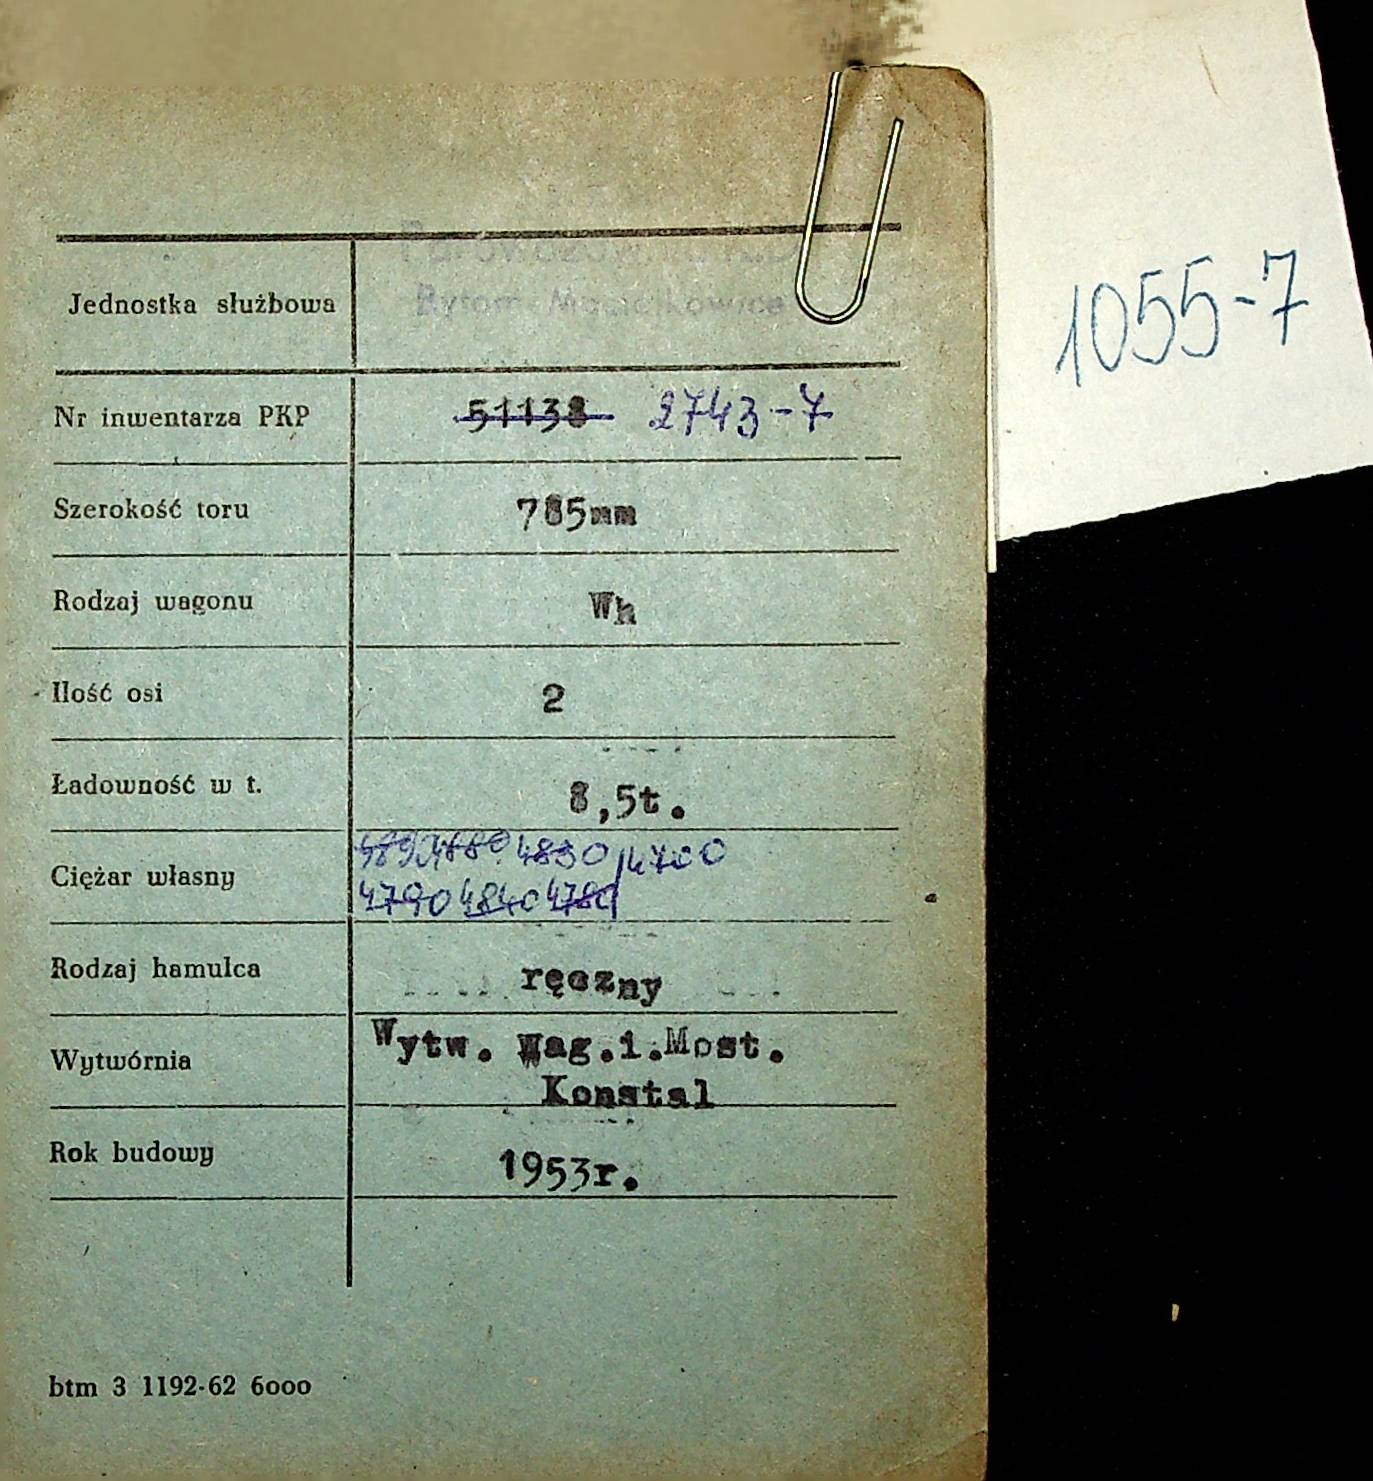 1055-7
Jednostka służbowa
Nr inwentarza PKP 51138 2743-7
Szerokość toru 785mm
Rodzaj wagonu Wh
Ilość osi 2
Ładowność w t. 8,5t.
4830 4700
Ciężar własny
4790 4840 4780
Rodzaj hamulca ręczny
Wytw. Wag.i.Most.
Wytwórnia
Konstal
Rok budowy 1953r.
btm 3 1192-62 6000